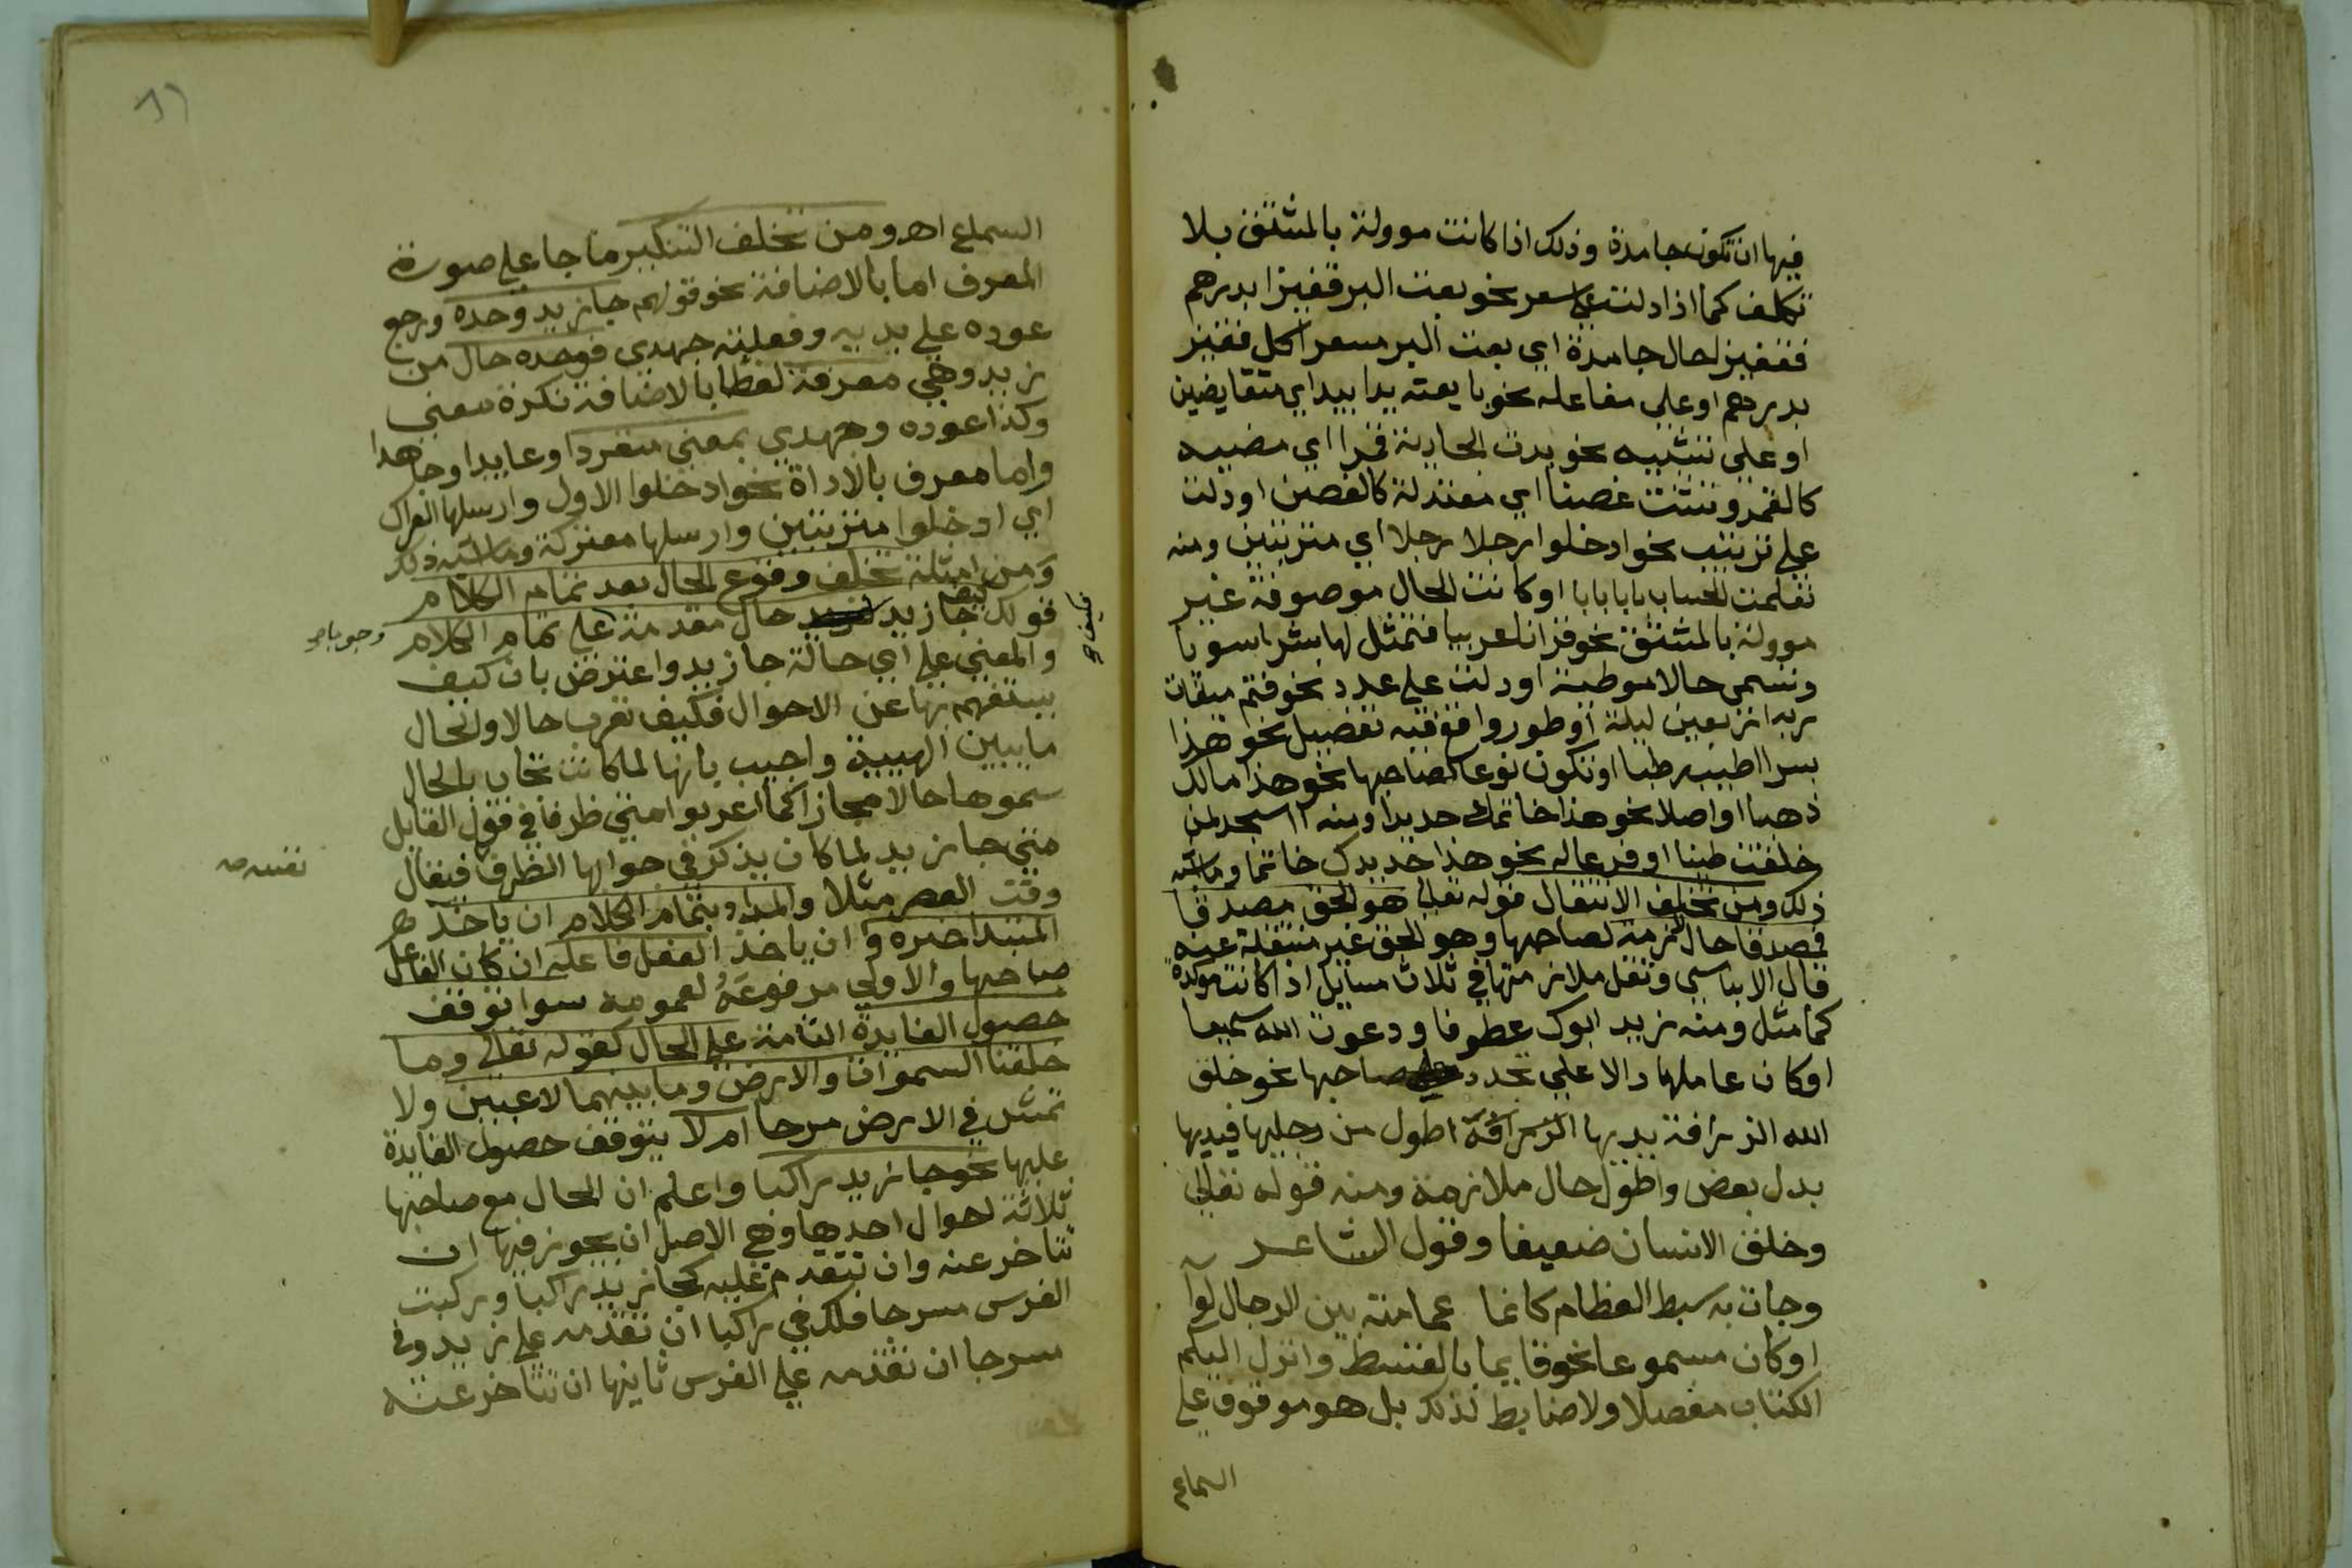 فيها ان تكون جامدة وذلك اذا كانت موولة بالمشتق بلا
تكلف كما اذا دلت على سعر نحو بعت البر قفيزا بدرهم
فقفيز لحال جامدة اي بعت البر مسعرا كل قفيز
بدرهم او على مفاعله نحو بايعته يدا بيد اي متقابضين
او على تشبيه نحو بدت الجارية قمرا اي مضييه
كالقمر وتثنت غصنا اي معتدلة كالغصن او دلت
على ترتيب نحو ادخلوا رجلا رجلا اي مترتبين ومنه
تعلمت الحساب بابا بابا او كانت الحال موصوفة غير
موولة بالمشتق نحو قرانا عربيا فتمثل لها بشرا سويا
وتسمى حالا موطية او دلت على عدد نحو فتم ميقات
ربه اربعين ليلة او طور واقع فيه تفضيل نحو هذا
بسرا اطيب رطبا او تكون نوعا لصاحبها نحو هذا مالك
ذهبا او اصلا نحو هذا خاتمك حديدا ومنه ااسجد لمن
خلقت طينا او فرعا له نحو هذا حديدك خاتما وما اشبه
ذلك ومن تخلف الانتقال قوله تعالى هو الحق مصدقا
فصدقا حال لازمة لصاحبها وهو الحق غير منتقلة عنه
قال الابناسي وتقل ملازمتها في ثلاث مسايل اذا كانت موكدة
كما مثل ومنه زيد ابوك عطوفا ودعوت الله سميعا
او كان عاملها دالا على تجدد صاحبها نحو خلق
الله الزرافة يديها الزرافة اطول من رجليها فيديها
بدل بعض واطول حال ملازمة ومنه قوله تعالى
وخلق الانسان ضعيفا وقول الشاعر
وجات به سبط العظام كانما عمامته بين الرجال لوا
او كان مسموعا نحو قايما بالقسط وانزل اليكم
الكتاب مفصلا ولا ضابط لذلك بل هو موقوف على
السماع
السماع اهـ ومن تخلف التنكير ما جا على صورة
المعرف اما بالاضافة نحو قولهم جا زيد وحده ورجع
عوده على بديه وفعلته جهدي فوحده حال من
زيد وهي معرفة لفظا بالاضافة نكرة معنى
وكذا عوده وجهدي بمعنى منفردا وعايدا وجاهدا
واما معرف بالاداة نحو ادخلوا الاول وارسلها العراك
اي ادخلوا مترتبين وارسلها معتركة وما اشبه ذلك
ومن امثلة تخلف وقوع الحال بعد تمام الكلام
قولك كيف جا زيد حال مقدمة على تمام الكلام
وجوبا صح
فكيف صح
والمعنى على اي حالة جا زيد واعترض بان كيف
يستفهم بها عن الاحوال فكيف تعرب حالا والحال
ما يبين الهيية واجيب بانها لما كانت تجاب بالحال
سموها حالا مجازا كما اعربوا متى ظرفا في قول القايل
متى جا زيد لما كان يذكر في جوابها الظرف فيقال
وقت العصر مثلا والمراد بتمام الكلام ان ياخذ
المبتدا خبره وان ياخذ الفعل فاعله ان كان الفاعل
صاحبها والاولى مرفوعه لعمومه سوا توقف
حصول الفايدة التامة على الحال كقوله تعالى وما
خلقنا السموات والارض وما بينهما لاعبين ولا
تمش في الارض مرحا ام لا يتوقف حصول الفايدة
عليها نحو جا زيد راكبا واعلم ان الحال مع صاحبها
ثلاثة احوال احدها وهي الاصل ان يجوز فيها ان
تتاخر عنه وان تتقدم عليه كجا زيد راكبا وركبت
الفرس مسرجا فلك في راكبا ان تقدمه على زيد وفي
مسرجا ان تقدمه على الفرس ثانيها ان تتاخر عنه